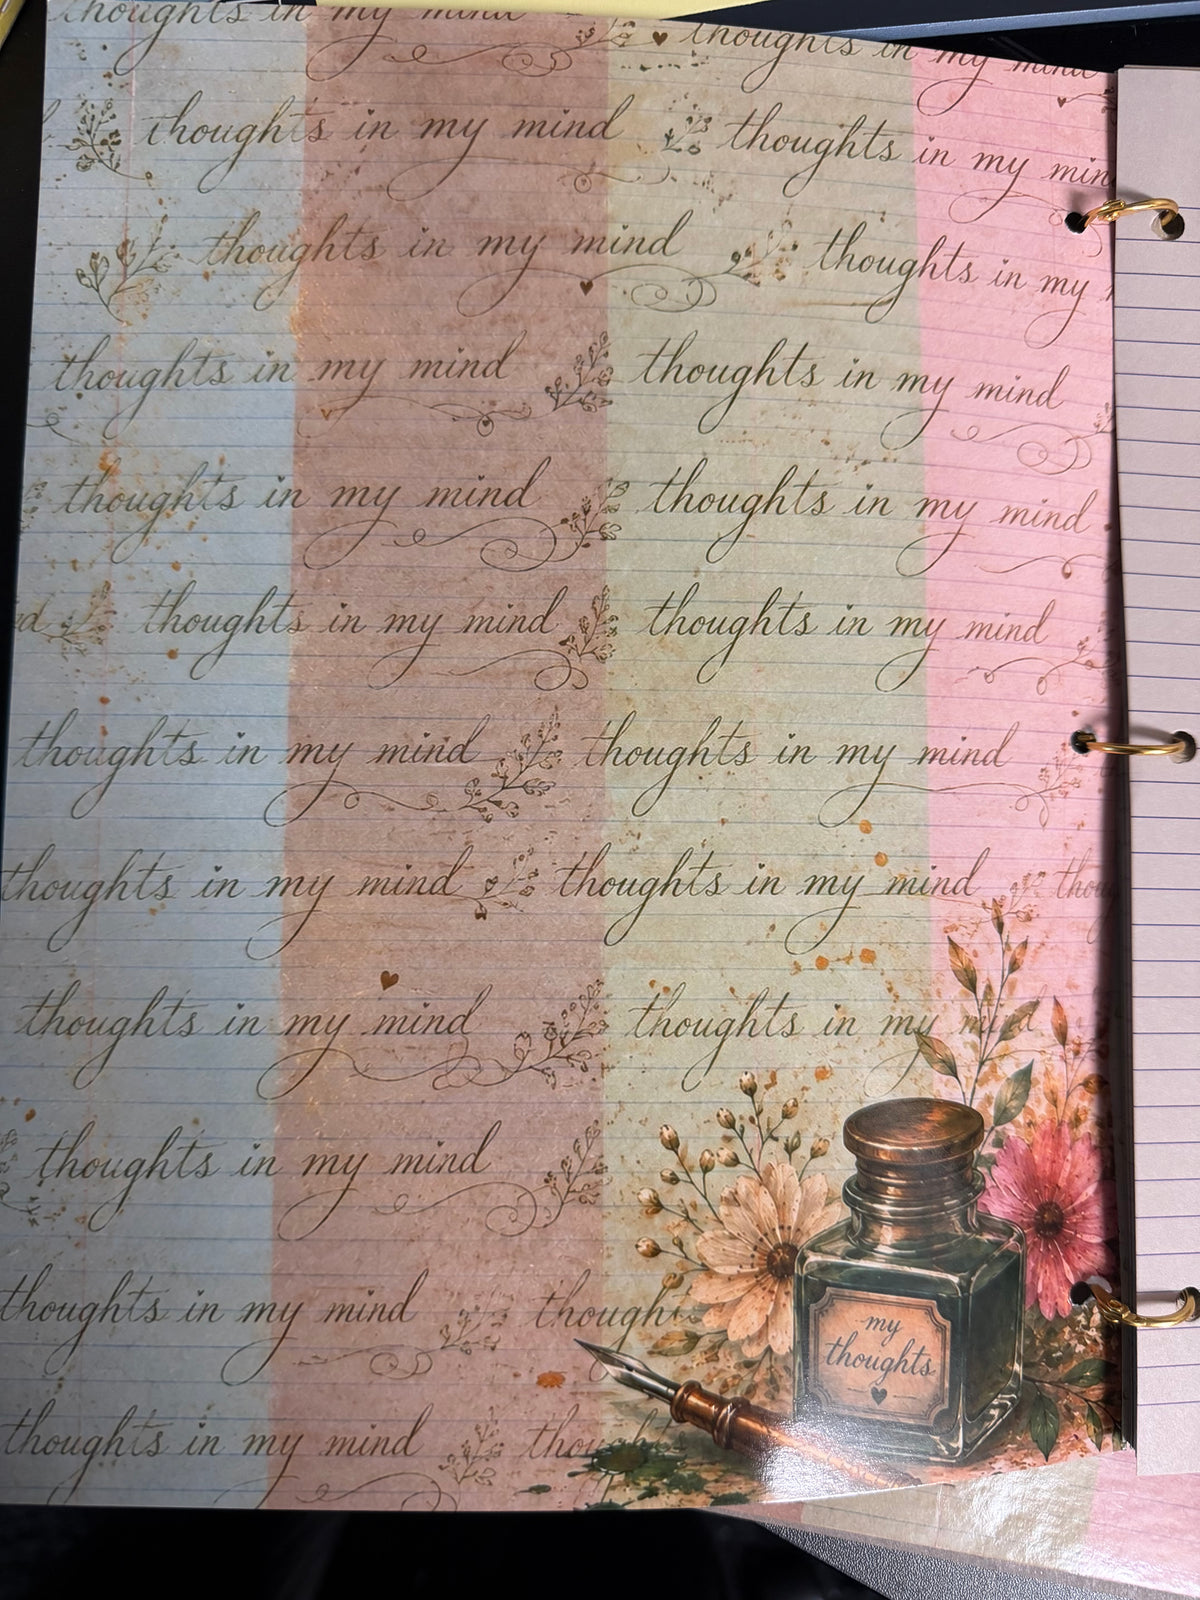 thoughts in my mind thoughts in my mind
thoughts in my mind thoughts in my min
thoughts in my mind thoughts in my
thoughts in my mind thoughts in my mind
thoughts in my mind thoughts in my mind
thoughts in my mind thoughts in my mind
thoughts in my mind thoughts in my mind
thoughts in my mind thoughts in my mind thou
thoughts in my mind thoughts in my mind
thoughts in my mind
thoughts in my mind thoughts
thoughts in my mind thoughts
my
thoughts